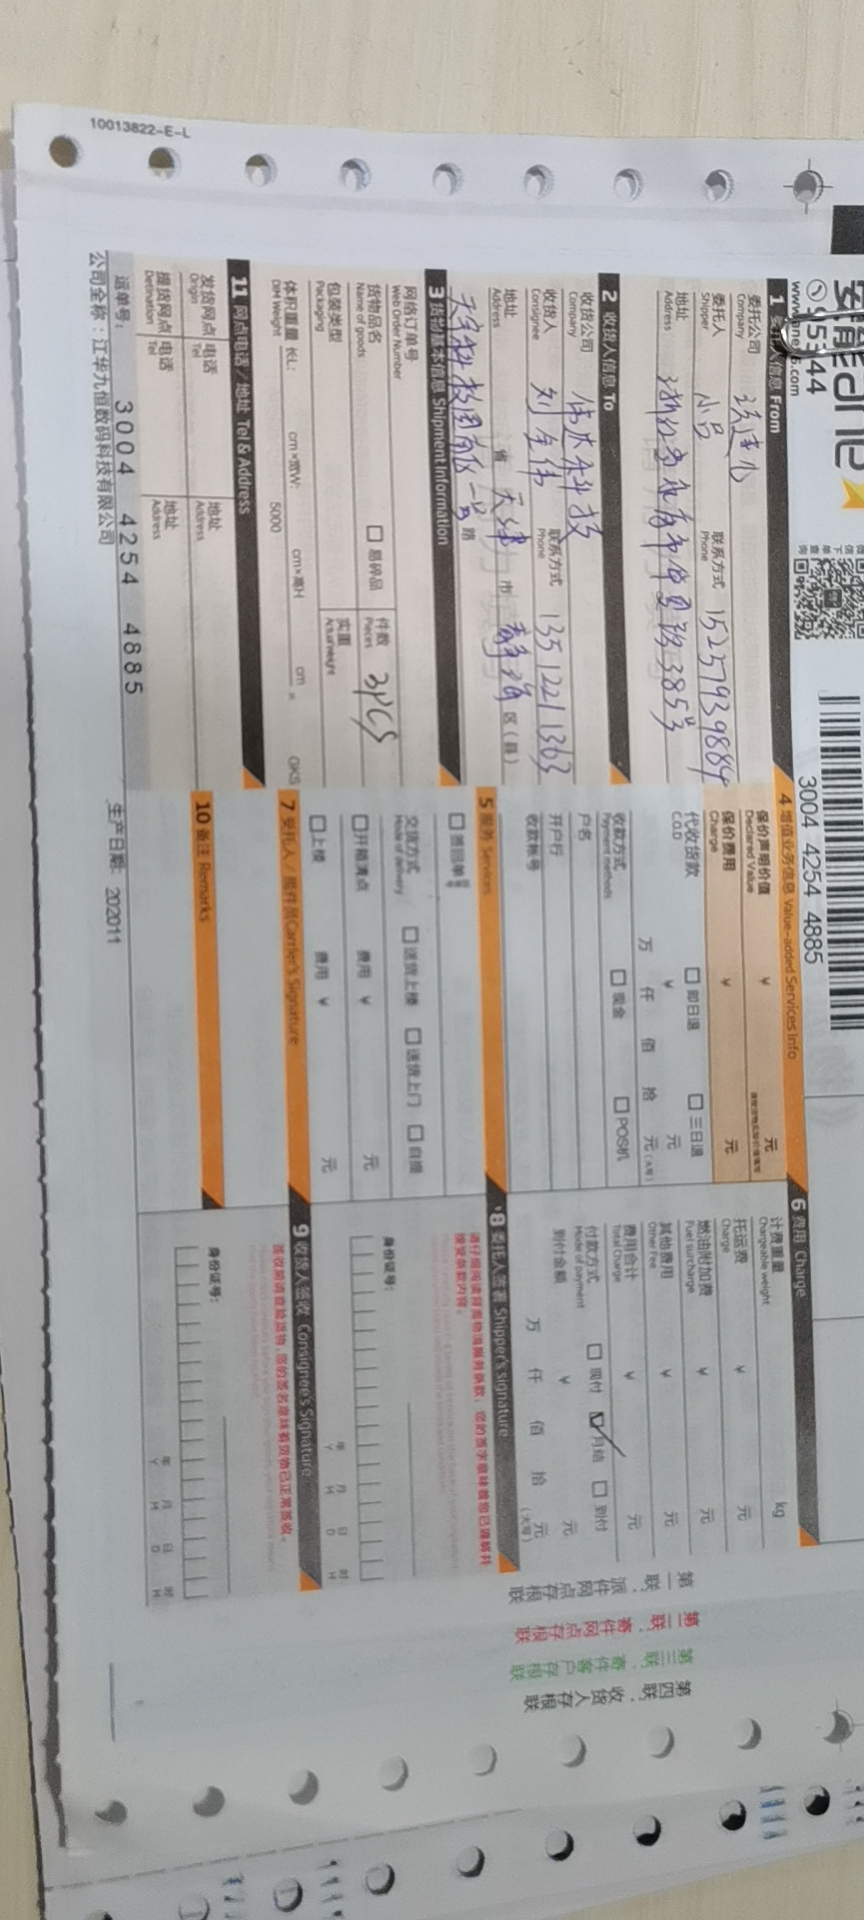 安能ane
95344
www.ane56.com
微信下单查询
3004 4254 4885
1 委托人信息 From
委托公司 Company
委托人 Shipper 小吕 联系方式 Phone 15257939884
地址 Address 浙江省永康市华夏路385号
2 收货人信息 To
收货公司 Company 伟达科技
收货人 Consignee 刘全伟 联系方式 Phone 13512211363
地址 Address 省 天津 市 静海 区(县)
天宇科技园南区一号 路
3 货物基本信息 Shipment Information
网络订单号 Web Order Number
货物品名 Name of goods 易碎品 件数 Pieces 3PCS
包装类型 Packaging 实重 Actual Weight
体积重量 DIM Weight 长L: cm×宽W: cm×高H cm = GKS
5000
11 网点电话/地址 Tel & Address
发货网点 Origin 电话 Tel 地址 Address
提货网点 Detination 电话 Tel 地址 Address
运单号: 3004 4254 4885
公司全称:江华九恒数码科技有限公司
4 增值业务信息 Value-added Services Info
保价声明价值 Declared Value ¥ 元
保价费用 Charge ¥ 元
代收货款 C.O.D 即日退 三日退
¥ 元
万 仟 佰 拾 元(大写)
收款方式 Payment methods 现金 POS机
户名
开户行
收款帐号
5 服务 Services
签回单
交货方式 Mode of delivery 送货上楼 送货上门 自提
开箱清点 费用 ¥ 元
上楼 费用 ¥ 元
7 受托人/揽件员Carrier's Signature
10 备注 Remarks
生产日期: 202011
6 费用 Charge
计费重量 Chargeable weight kg
托运费 Charge ¥ 元
燃油附加费 Fuel surcharge ¥ 元
其他费用 Other Fee ¥ 元
费用合计 Total Charge ¥ 元
付款方式 Mode of payment 现付 月结 到付
到付金额 ¥ 元
万 仟 佰 拾 元
(大写)
8 委托人签署 Shipper's signature
请仔细阅读背面物流服务条款,您的签字意味着您已理解并
接受条款内容。
身份证号:
年 月 日 时
Y M D H
9 收货人签收 Consignee's Signature
签收前请查验货物,您的签名意味着货物已正常签收。
身份证号:
年 月 日 时
Y M D H
第一联:派件网点存根联
第二联:寄件网点存根联
第三联:寄件客户存根联
第四联:收货人存根联
10013822-E-L